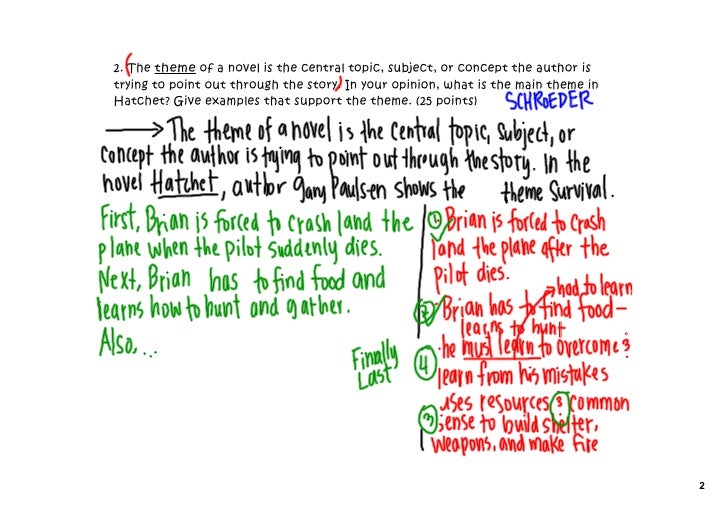 2. (The theme of a novel is the central topic, subject, or concept the author is
trying to point out through the story.) In your opinion, what is the main theme in
Hatchet? Give examples that support the theme. (25 points)
SCHROEDER
→ The theme of a novel is the central topic, subject, or
concept the author is trying to point out through the story. In the
novel Hatchet, author Gary Paulsen shows the theme Survival.
First, Brian is forced to crash land the
plane when the pilot suddenly dies.
Next, Brian has to find food and
learns how to hunt and gather.
Also,...
Finally
Last
1 Brian is forced to crash
land the plane after the
pilot dies.
had to learn
2 Brian has to find food-
learns to hunt
4 he must learn to overcome &
learn from his mistakes
3 uses resources & common
sense to build shelter,
weapons, and make fire
2